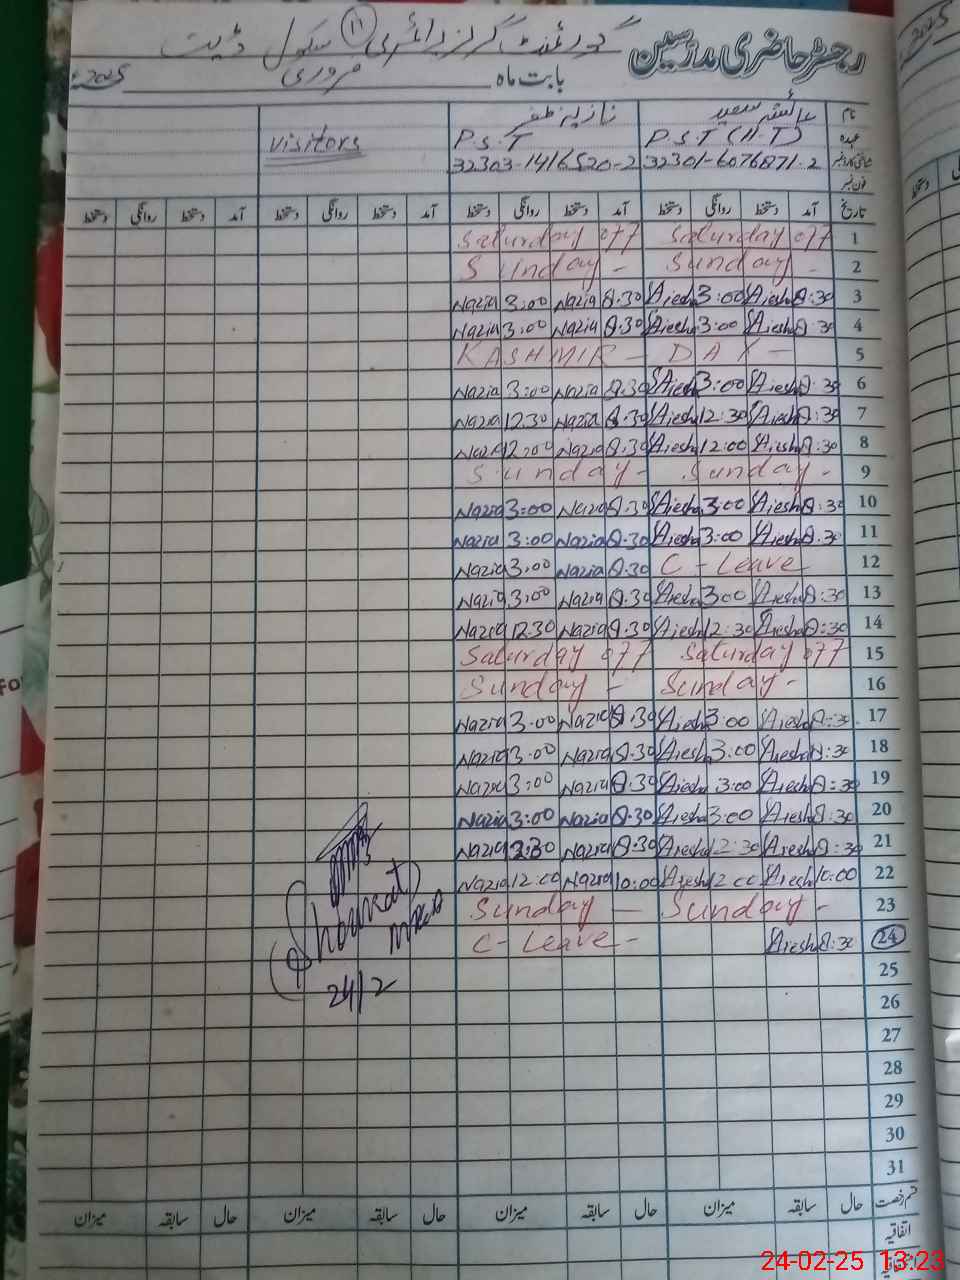 رجسٹر حاضری مدرسین گورنمنٹ گرلز پرائمری سکول ڈیٹ
بابت ماہ فروری 2025ء
نام عائشہ سعید نازیہ ظفر
عہدہ P.S.T (H.T) P.S.T Visitors
شناختی کارڈ نمبر 32301-6076871-2 32303-1416520-2
فون نمبر
تاریخ آمد دستخط روانگی دستخط آمد دستخط روانگی دستخط آمد دستخط روانگی دستخط آمد دستخط روانگی دستخط
1 Saturday off Saturday off
2 Sunday - Sunday -
3 8:30 Aiesha 3:00 Aiesha 8.30 Nazia 3:00 Nazia
4 8:30 Aiesha 3:00 Aiesha 8.30 Nazia 3:00 Nazia
5 KASHMIR - DAY -
6 8:30 Aiesha 3:00 Aiesha 8.30 Nazia 3:00 Nazia
7 8:30 Aiesha 12:30 Aiesha 8.30 Nazia 12.30 Nazia
8 8:30 Aiesha 12:00 Aiesha 8.30 Nazia 12:00 Nazia
9 Sunday - Sunday -
10 8:30 Aiesha 3:00 Aiesha 8.30 Nazia 3:00 Nazia
11 8:30 Aiesha 3:00 Aiesha 8.30 Nazia 3:00 Nazia
12 C - Leave 8.30 Nazia 3.00 Nazia
13 8:30 Aiesha 3:00 Aiesha 8.30 Nazia 3:00 Nazia
14 8:30 Aiesha 12:30 Aiesha 8.30 Nazia 12.30 Nazia
15 Saturday off Saturday off
16 Sunday - Sunday -
17 8:30 Aiesha 3:00 Aiesha 8.30 Nazia 3:00 Nazia
18 8:30 Aiesha 3:00 Aiesha 8.30 Nazia 3:00 Nazia
19 8:30 Aiesha 3:00 Aiesha 8.30 Nazia 3:00 Nazia
20 8:30 Aiesha 3:00 Aiesha 8.30 Nazia 3:00 Nazia
21 8:30 Aiesha 12:30 Aiesha 8.30 Nazia 12:30 Nazia
22 10:00 Aiesha 12:00 Aiesha 10:00 Nazia 12:00 Nazia
23 Sunday - Sunday -
24 8:30 Aiesha C- Leave -
Shoukat
24/2
25
26
27
28
29
30
31
قسم رخصت حال سابقہ میزان حال سابقہ میزان حال سابقہ میزان حال سابقہ میزان
اتفاقیہ
24-02-25 13:23